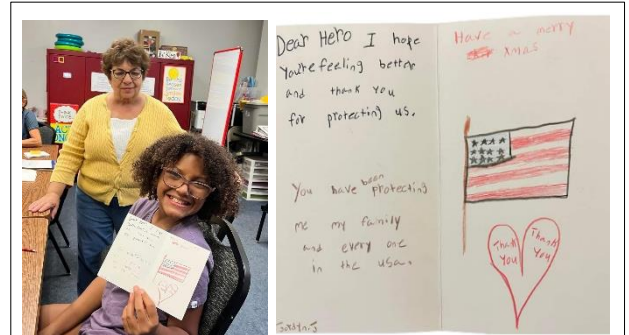 Dear Hero I hope
You're feeling better
and thank you
for protecting us.
You have been protecting
me my family
and every one
in the usa.
Have a merry
xmas
Thank
You
Thank
You